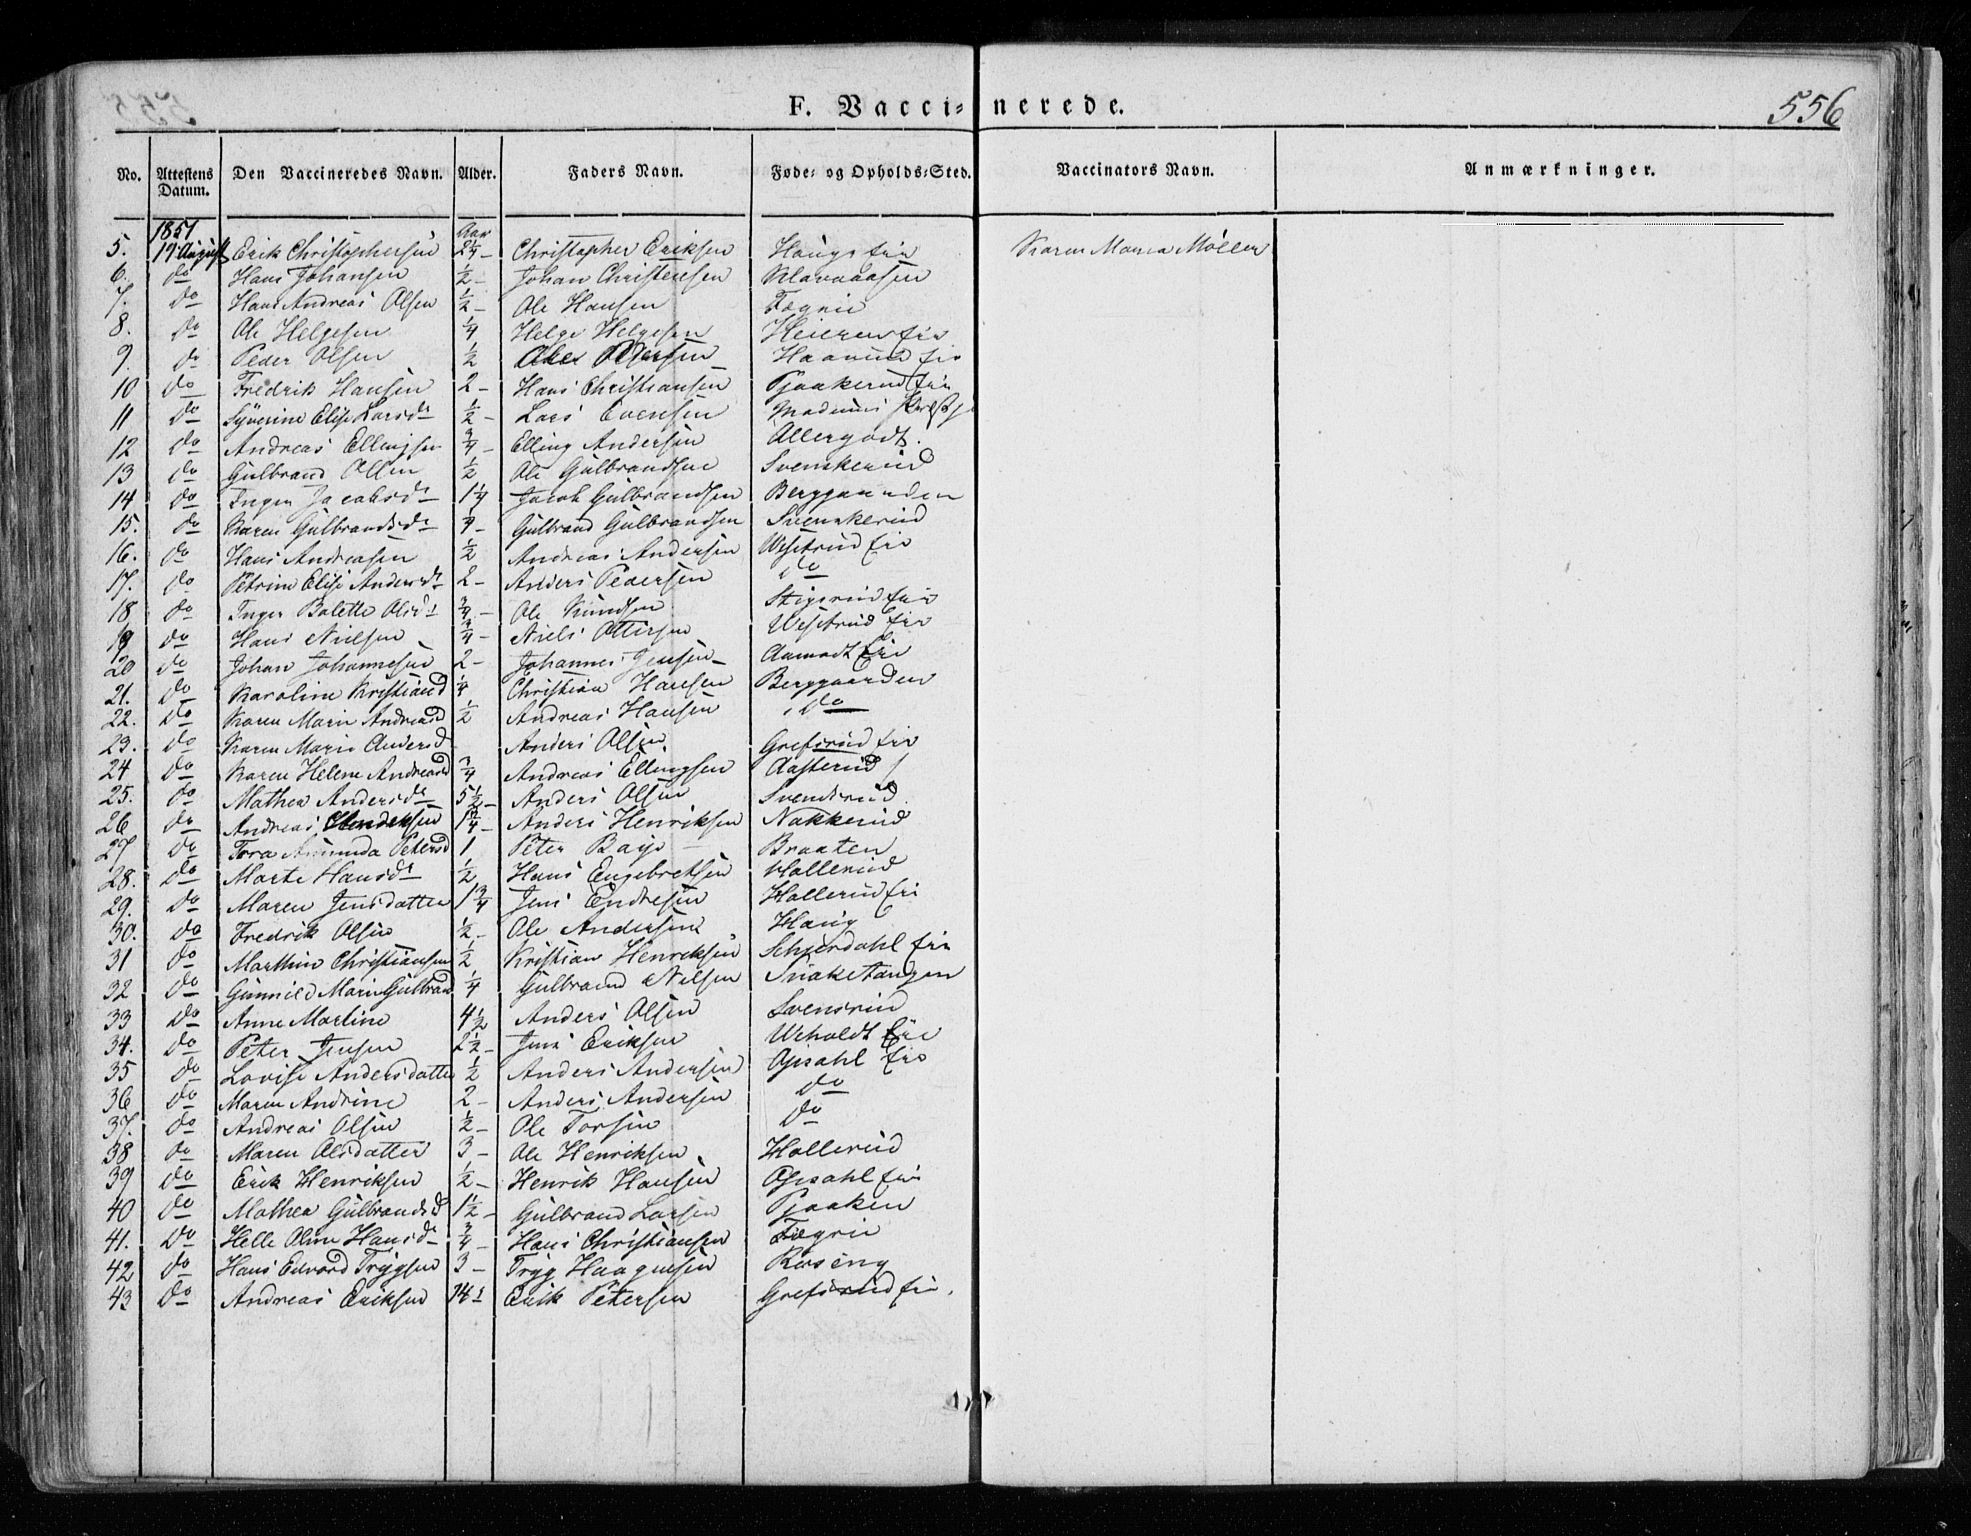 F. Vaccinerede. 556
No. Attestens Datum. Den Vaccineredes Navn. Alder. Faders Navn. Føde- og Opholds-Sted. Vaccinators Navn. Anmærkninger.
1851 Aar
5. 19 August Erik Christophersen Christopher Eriksen Haugs Eie Karen Maria Møller
6. do Hans Johansen ½ - Johan Christensen
7. do Hans Andreas Olsen ½ - Ole Hansen Fægrie
8. do Ole Helgesen ¼ Helge Helgesen
9. do Peder Olsen ½ Pedersen
10 do Fredrik Hansen 2 - Hans Christiansen Pjaakerud Eie
11 do Syverine Elise Larsdr ½ - Lars Evensen
12 do Andreas Ellingsen ¾ - Elling Andersen Allergodt.
13 do Gulbrand Olsen ½ Ole Gulbrandsen Svenskerud
14 do Inger Jacobsdr 1¼ Jacob Gulbrandsen Berggaarden
15. do Karen Gulbrandsdr Gulbrand Gulbrandsen Svenskerud
16. do Hans Andreasen ½ Andreas Andersen Vesetrud Eie
17. do Petrine Elise Andersdr 2 - Anders Pedersen do
18 do Inger Bolette Olsdr ¾ - Ole Knudsen Stigsrud Eie
19 do Hans Nielsen ¾ - Niels Ottersen Vesetrud Eie
20 do Johan Johannesen 2 - Johannes Jensen Aamodt Eie
21. do Karoline Kristiansd ¼ Christian Hansen Berggaarden
22. do Karen Marie Andreasd ½ Andreas Hansen do
23. do Karen Marie Andersd Anders Olsen Grefsrud Eie
24 do Karen Helene Andreasd ¾ Andreas Ellingsen Aasterud
25. do Mathea Andersdr 5½ - Anders Olsen Svendsrud
26 do Andreas Hendriksen Anders Henriksen Nakkerud
27 do Tora Amunda Petersd 1 Peter Braaten
28. do Marte Hansdr ½ Hans Engebretsen Hollerud
29. do Maren Jensdatter 1¾ Jens Endresen Hollerud Eie
30. do Fredrik Olsen ½ - Ole Andersen Haug
31 do Marthin Christiansen ½ Kristian Henriksen Schjerdahl Eie
32 do Gunnild Marie Gulbrand ¼ Gulbrand Nilsen Snaketangen
33 do Anne Martine 4½ Anders Olsen Svensrud
34. do Peter Jensen 2½ - Jens Eriksen Veholdt Eie
35 do Lovise Andersdatter ½ Anders Andersen Opsahl Eie
36 do Maren Andrine 2 - Anders Andersen do
37. do Andreas Olsen ½ - Ole Torsen do
38 do Maren Olsdatter 3 - Ole Henriksen Hollerud
39 do Erik Henriksen ½ - Henrik Hansen Opsahl Eie
40 do Mathea Gulbrandsd 1½ - Gulbrand Larsen Pjaaken
41. do Helle Oline Hansdr ¾ - Hans Christiansen Fægrie
42 do Hans Edvard Trygsen 3 - Tryg Haagensen Røseng
43 do Andreas Eriksen Erik Petersen Grefsrud Eie.